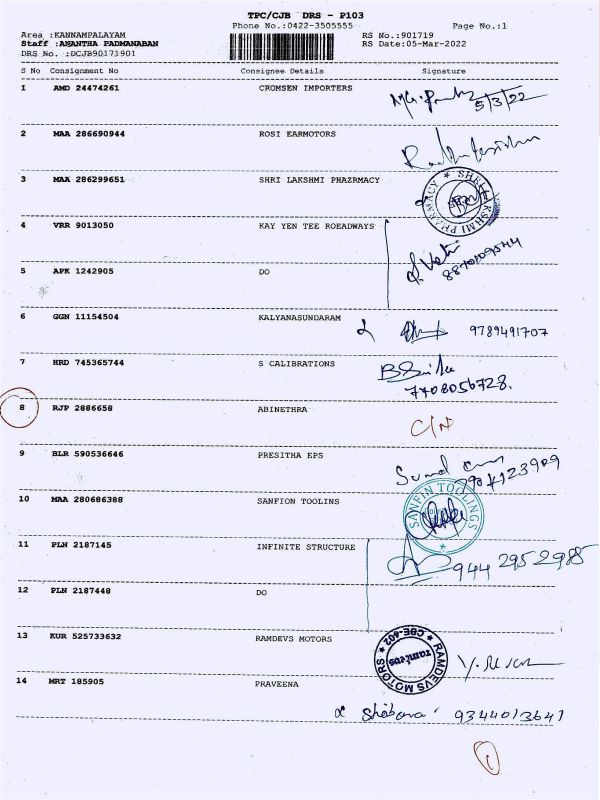 TPC/CJB DRS - P103
Phone No.:0422-3505555 Page No.:1
Area :KANNAMPALAYAM RS No.:901719
Staff :ANANTHA PADMANABAN RS Date:05-Mar-2022
DRS No. :DCJB90171901
S No Consignment No Consignee Details Signature
1 AMD 24474261 CROMSEN IMPORTERS
5/3/22
2 MAA 286690944 ROSI EARMOTORS
3 MAA 286299651 SHRI LAKSHMI PHAZRMACY
4 VRR 9013050 KAY YEN TEE ROEADWAYS
5 APK 1242905 DO
6 GGN 11154504 KALYANASUNDARAM
9789491707
7 HRD 745365744 S CALIBRATIONS
7708056728.
8 RJP 2886658 ABINETHRA
C/N
9 BLR 590536646 PRESITHA EPS
10 MAA 280686388 SANFION TOOLINS
SANFIN TOOLINGS
11 PLN 2187145 INFINITE STRUCTURE
944 2952985
12 PLN 2187448 DO
13 KUR 525733632 RAMDEVS MOTORS
RAMDEVS MOTORS CBE-602
ramdevs
14 MRT 185905 PRAVEENA
Shobana 9344013641
1